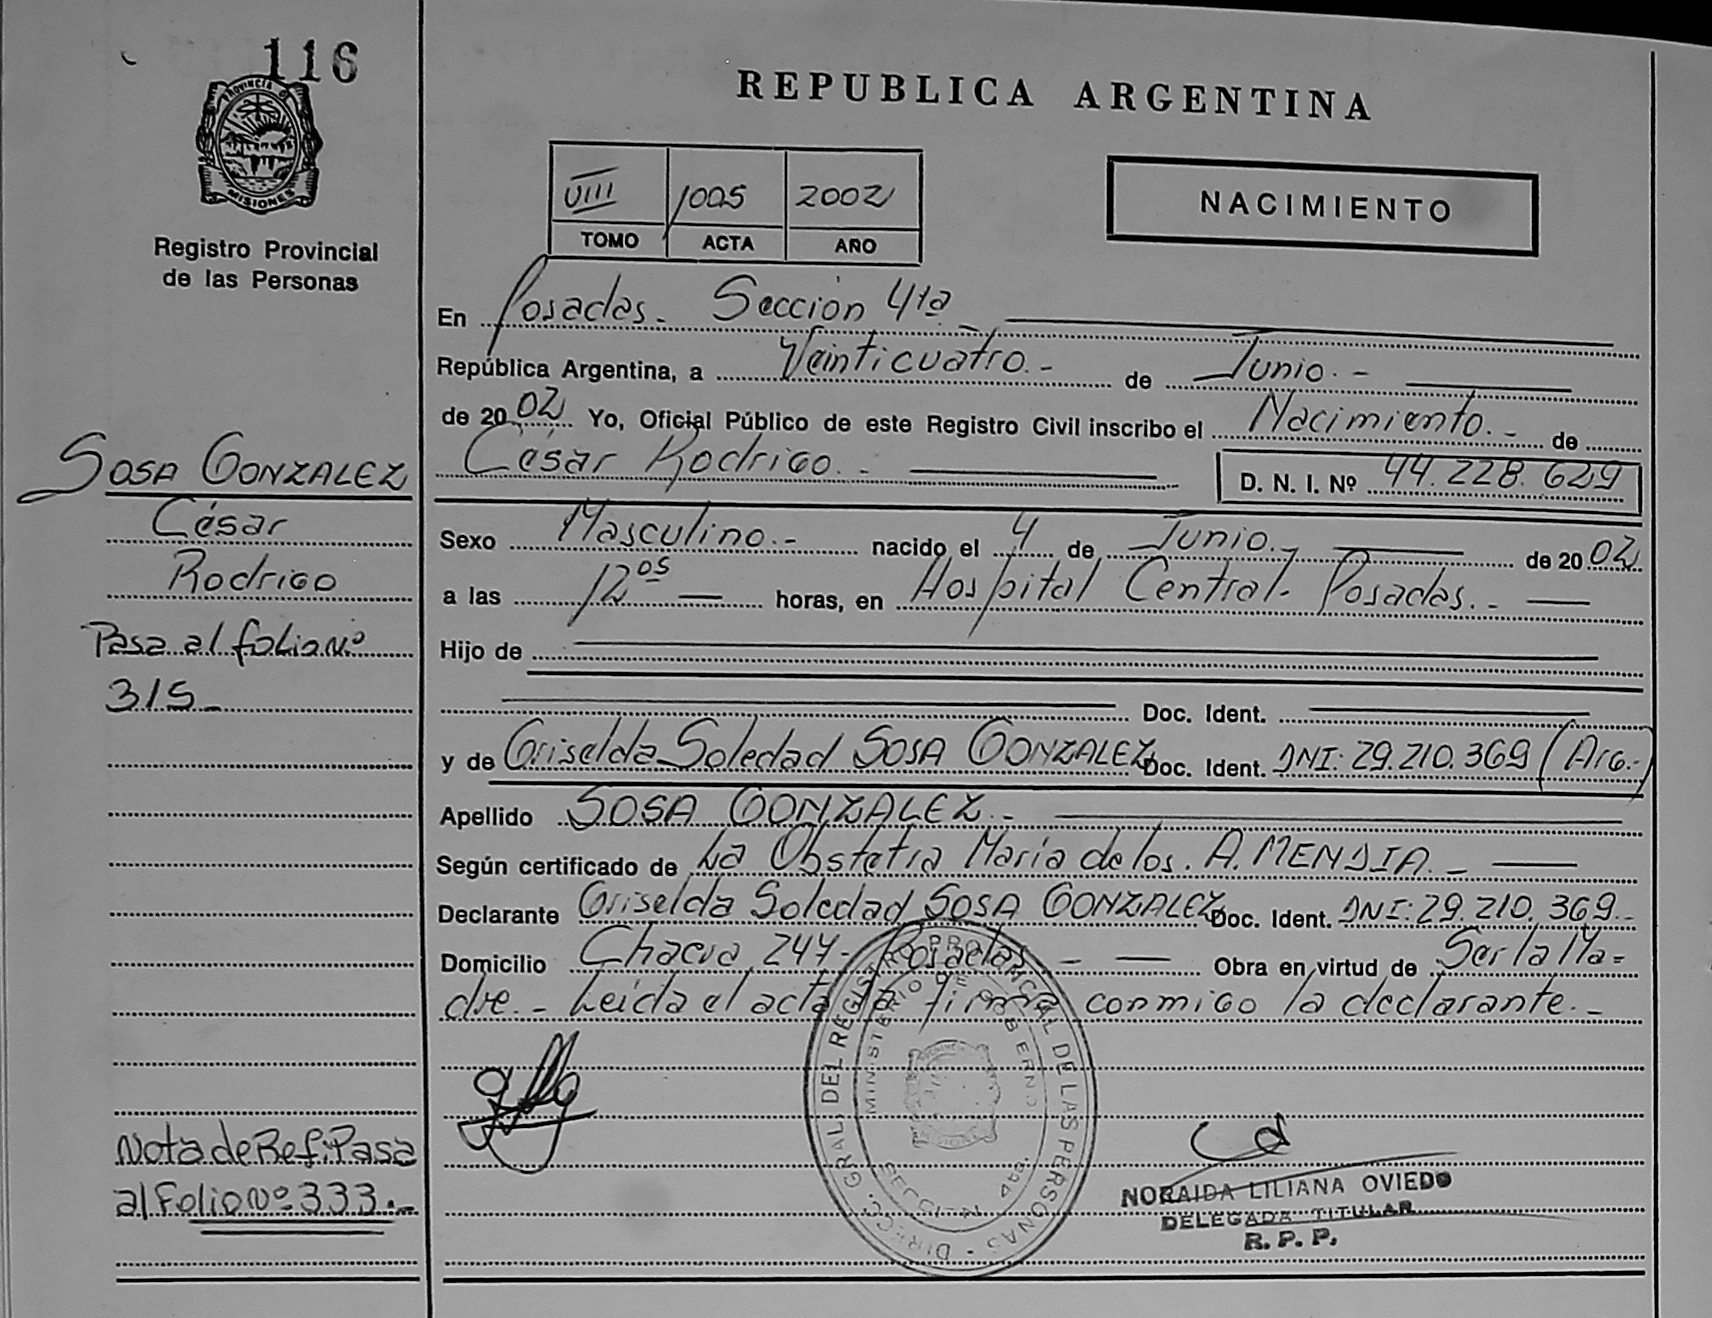 116
PROVINCIA DE
MISIONES
Registro Provincial
de las Personas
REPUBLICA ARGENTINA
VIII 1005 2002
TOMO ACTA AÑO
NACIMIENTO
En Posadas. Sección 4ta
República Argentina, a Veinticuatro.- de Junio.-
de 2002 Yo, Oficial Público de este Registro Civil inscribo el Nacimiento.- de
César Rodrigo.- D. N. I. Nº 44.228.629
Sexo Masculino.- nacido el 4 de Junio.- de 2002
a las 12 05 horas, en Hospital Central. Posadas.-
Hijo de
Doc. Ident.
y de Griselda Soledad SOSA GONZALEZ Doc. Ident. DNI: 29.210.369 (Arg.-)
Apellido SOSA GONZALEZ.-
Según certificado de La Obstetra María de los. A. MENDIA.-
Declarante Griselda Soledad SOSA GONZALEZ Doc. Ident. DNI: 29.210.369.-
Domicilio Chacra 244- Posadas.- Obra en virtud de Ser la Ma=
dre.- Leída el acta la firma conmigo la declarante.-
SOSA GONZALEZ
César
Rodrigo
Pasa al folio Nº
315-
Nota de Ref: Pasa
al Folio Nº 333.-
DIRECC. GRAL. DEL REGISTRO PROVINCIAL DE LAS PERSONAS
MINISTERIO DE GOBIERNO
NORAIDA LILIANA OVIEDO
DELEGADA TITULAR
R. P. P.